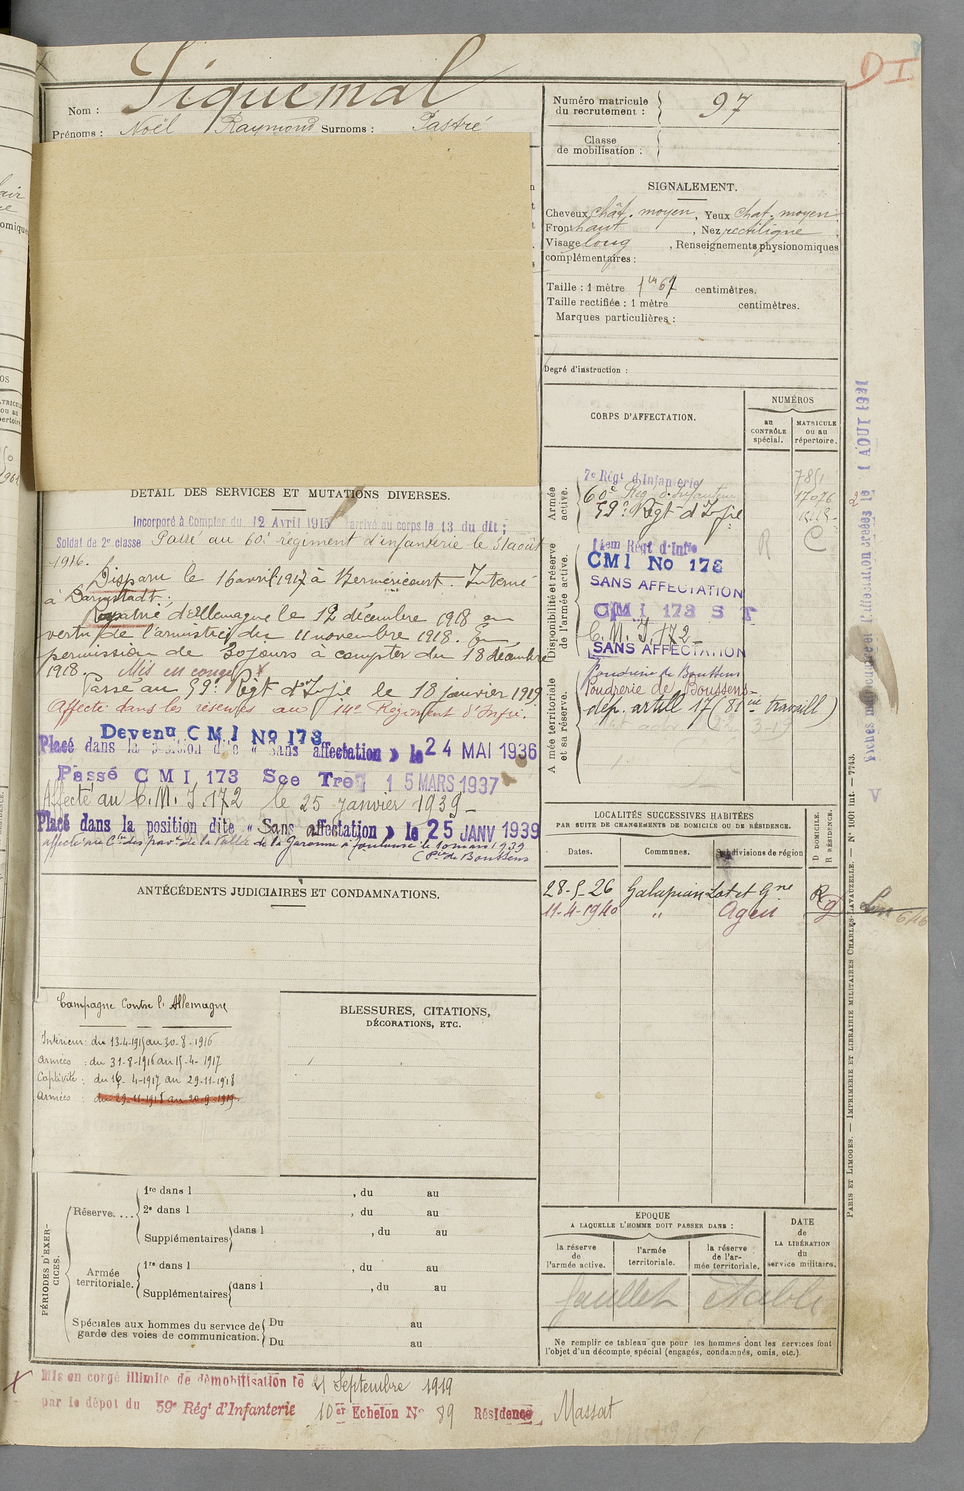 DI
Nom : Piquemal
Prénoms : Noël Raymond Surnoms : Pastré
Numéro matricule du recrutement : 97
Classe de mobilisation :
SIGNALEMENT.
Cheveux chât. moyen, Yeux chat. moyen
Front haut, Nez rectiligne
Visage long, Renseignements physionomiques
complémentaires :
Taille : 1 mètre 1m 67 centimètres.
Taille rectifiée : 1 mètre centimètres.
Marques particulières :
Degré d'instruction :
CORPS D'AFFECTATION.
NUMÉROS
au CONTRÔLE spécial.
MATRICULE ou au répertoire.
Armée active.
7e Régt d'Infanterie
60e Rég. d'Infanterie
59e Régt d'Infie
Disponibilité et réserve de l'armée active.
14em Régt d'Infie
CMI No 173
SANS AFFECTATION
CMI 173 S T
C. M. I. 172
SANS AFFECTATION
Armée territoriale et sa réserve.
Poudrerie de Boussens
Poudrerie de Boussens
dép. artill 17 (81me travaill)
Fiches matricule et d'affectation créées le 1 AOUT 1921
V
DÉTAIL DES SERVICES ET MUTATIONS DIVERSES.
Incorporé à Compter du 12 Avril 1915 arrivé au corps le 13 du dit ;
Soldat de 2e classe Passé au 60e régiment d'infanterie le 31 août
1916.
Disparu le 16 avril 1917 à Berméricourt. Interné
à Darmstadt.
Rapatrié d'Allemagne le 12 décembre 1918 en
vertu de l'armistice du 11 novembre 1918. En
permission de 30 jours à compter du 18 décembre
1918. Mis en congé
Passé au 59e Régt d'Infie le 18 janvier 1919
Affecté dans les réserves au 14e Régiment d'Infie.
Devenu CMI No 173
Placé dans la position dite « Sans affectation » le 24 MAI 1936
Passé CMI 173 Sce Tre 15 MARS 1937
Affecté au C. M. I. 172 le 25 janvier 1939
Placé dans la position dite « Sans affectation » le 25 JANV 1939
ANTÉCÉDENTS JUDICIAIRES ET CONDAMNATIONS.
LOCALITÉS SUCCESSIVES HABITÉES
PAR SUITE DE CHANGEMENTS DE DOMICILE OU DE RÉSIDENCE.
D DOMICILE.
R RÉSIDENCE.
Dates. Communes. Subdivisions de région
28-5-26 Galapian Lot et Gne R
11-4-1940 " Agen
Campagne Contre l'Allemagne
Intérieur : du 13-4-1915 au 30-8-1916
Armées : du 31-8-1916 au 15-4-1917
Captivité : du 16-4-1917 au 29-11-1918
Armées : du 29-11-1918 au 20-9-1919
BLESSURES, CITATIONS,
DÉCORATIONS, ETC.
PÉRIODES D'EXERCICES.
Réserve....
1re dans l , du au
2e dans l , du au
Supplémentaires dans l , du au
Armée territoriale.
1re dans l , du au
Supplémentaires dans l , du au
Spéciales aux hommes du service de garde des voies de communication.
Du au
Du au
EPOQUE
A LAQUELLE L'HOMME DOIT PASSER DANS :
la réserve de l'armée active.
l'armée territoriale.
la réserve de l'armée territoriale.
DATE de LA LIBÉRATION du service militaire.
feuillet établi
Ne remplir ce tableau que pour les hommes dont les services font
l'objet d'un décompte spécial (engagés, condamnés, omis, etc.).
PARIS ET LIMOGES. — IMPRIMERIE ET LIBRAIRIE MILITAIRES CHARLES-LAVAUZELLE. — N° 1001 int. — 7743.
Mis en congé illimité de démobilisation le 21 Septembre 1919
par le dépot du 59e Régt d'Infanterie 10er Echelon No 89 Résidence Massat